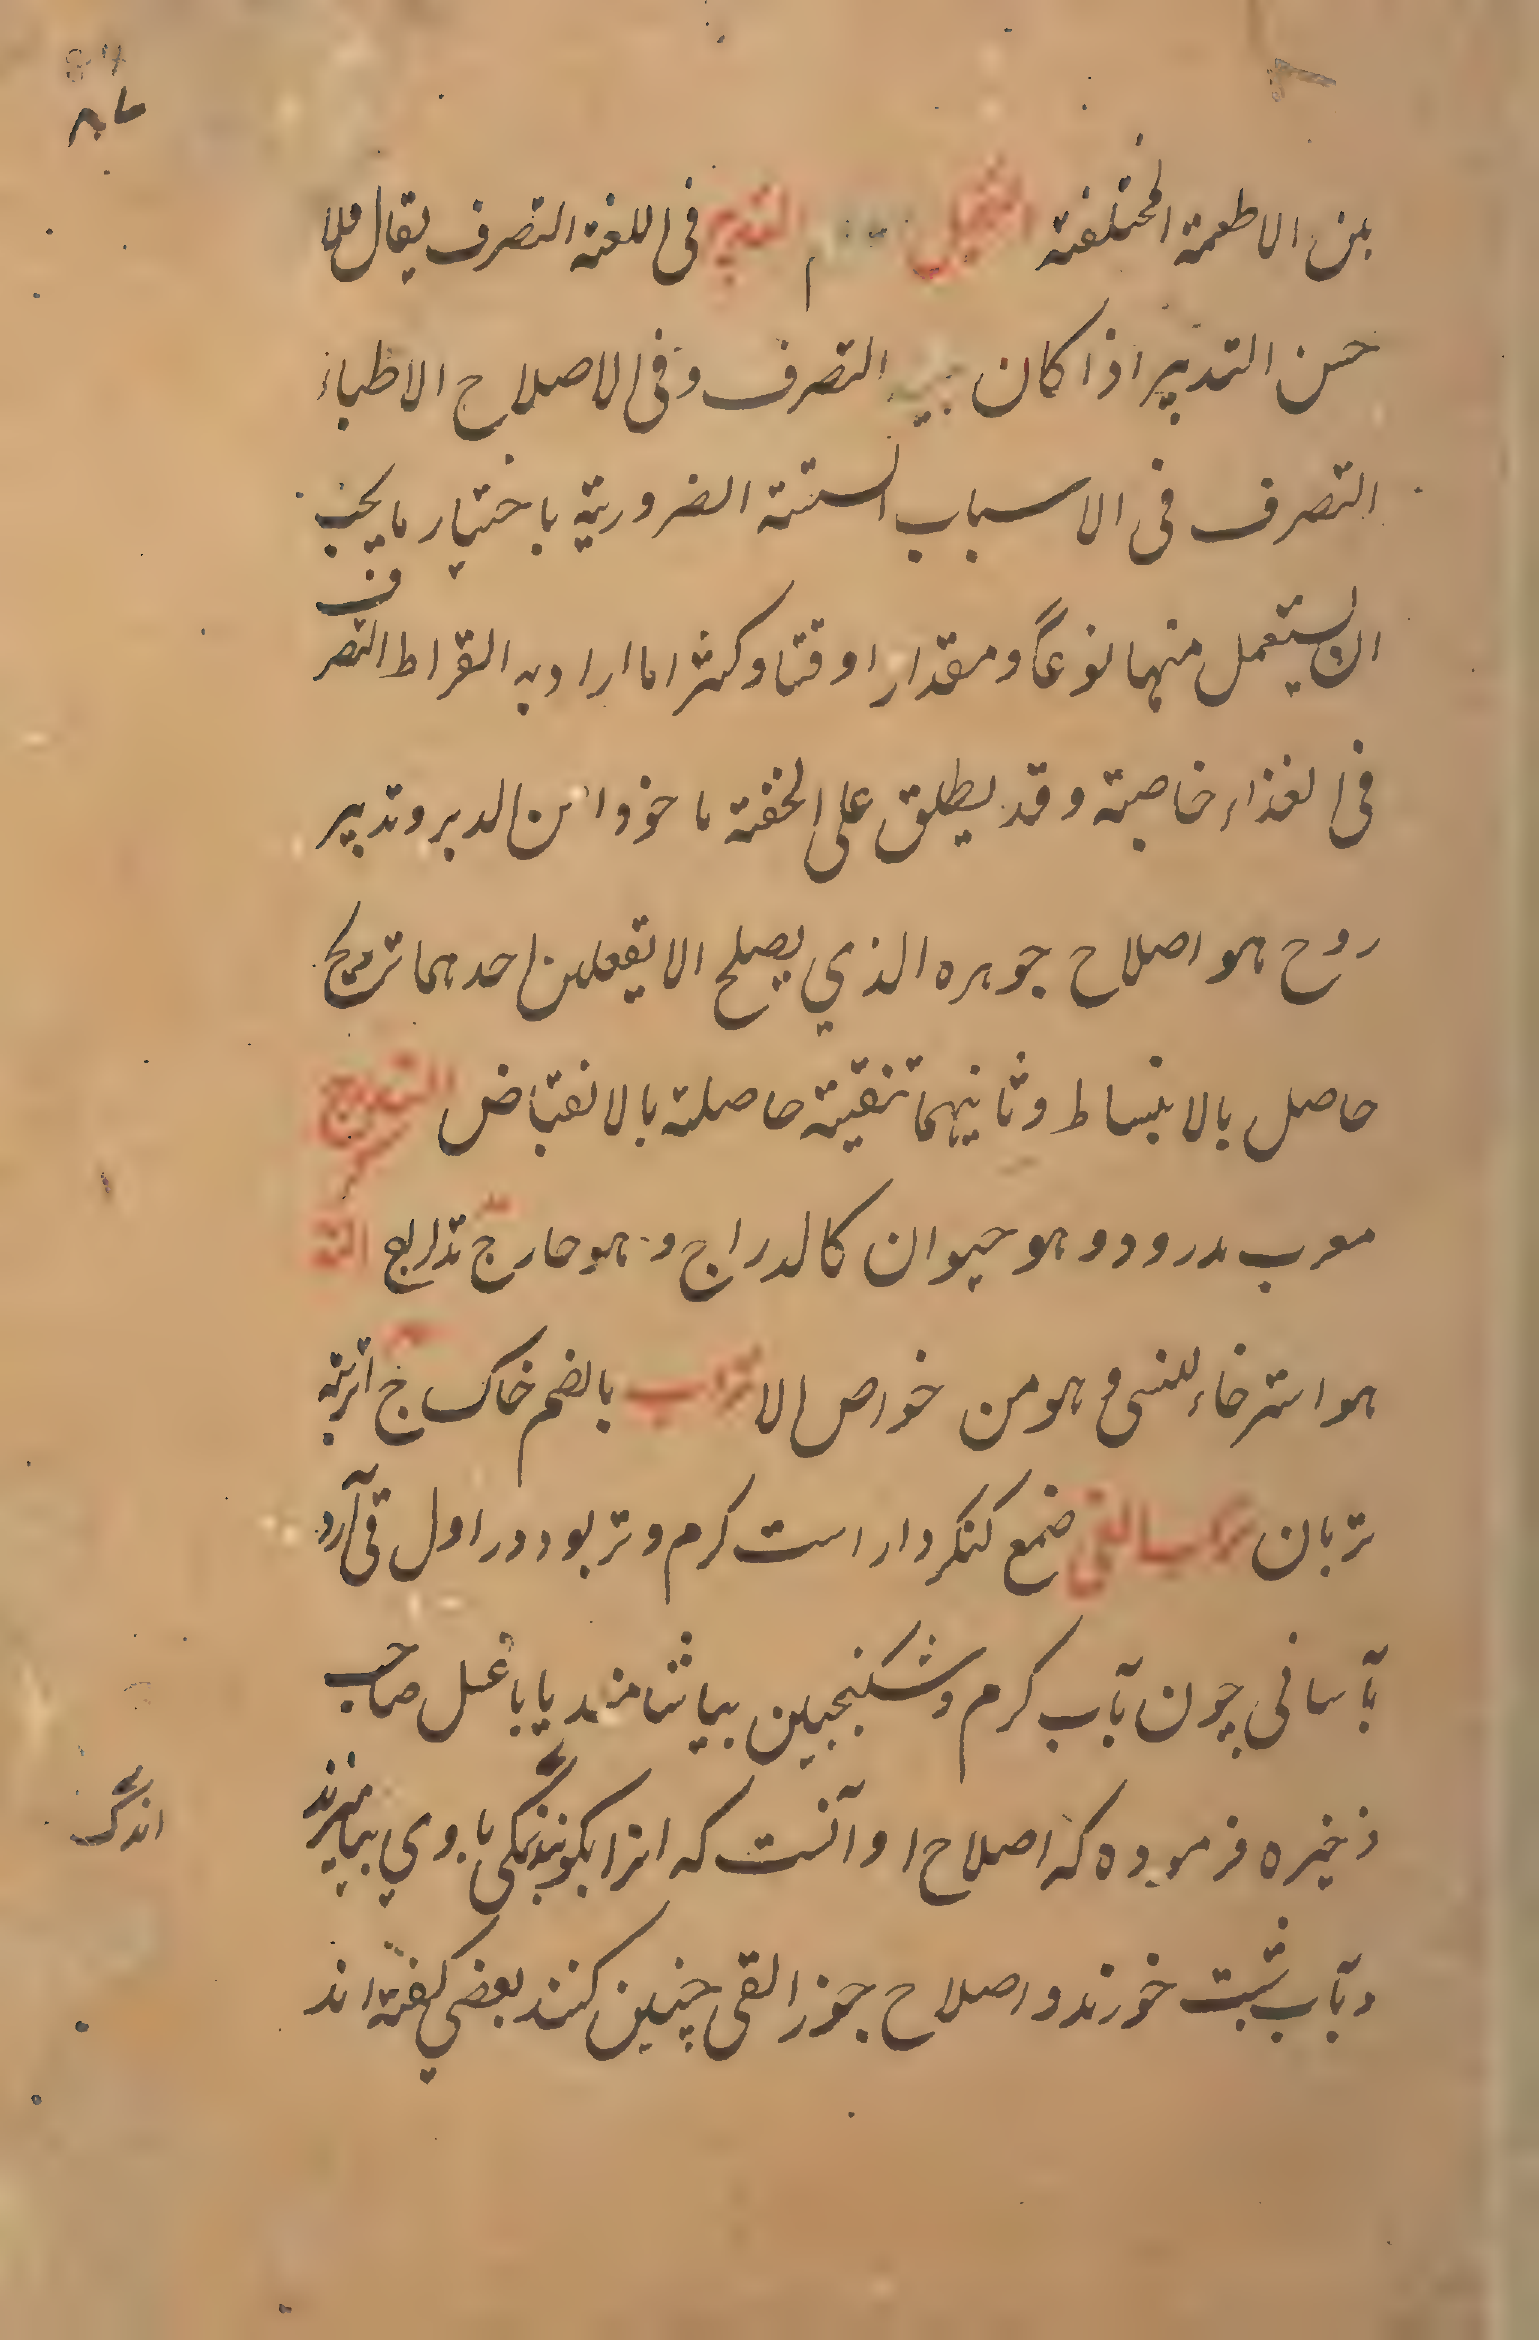 ۸۷
بين الاطعمة المختلفة التدبير فى اللغة التصرف يقال فلان
حسن التدبير اذا كان التصرف وفى الاصلاح الاطباء
التصرف فى الاسباب الستة الضرورية باختيار ما يجب
ان يستعمل منها نوعاً ومقدارا وقتا وكثرا ما اراد به القراط التصرف
فى الغذاء خاصة وقد يطلق على الحقنة ماخوذا من الدبر وتدبير
روح هو اصلاح جوهره الذي يصلح الا بفعلين احدهما ترويح
حاصل بالانبساط وثانيهما تنقية حاصلة بالانقباض التدرج
معرب تدرو وهو حيوان كالدراج وهو حار ج تدارج
هو استرخاء للشى وهو من خواص الا تراب بالضم خاك ج اتربة
تربان تراب القى صمغ كنكردار است كرم وتر بود در اول قى آرد
بآسانى چون بآب كرم وشكنجبين بياشامند يا با عسل صاحب
ذخيره فرموده كه اصلاح او آنست كه انرا بكوبند با وي بياميزند
وبآب شبت خورند واصلاح جوز القى چنين كنند بعضي كفته اند
اندكى